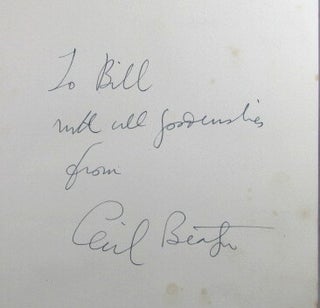 To Bill
with all good wishes
from
Cecil Beaton